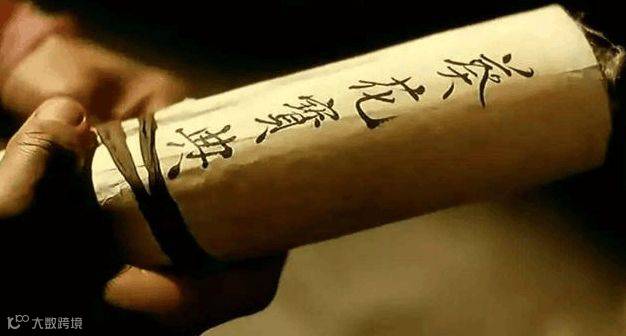 葵花寶典
大数跨境